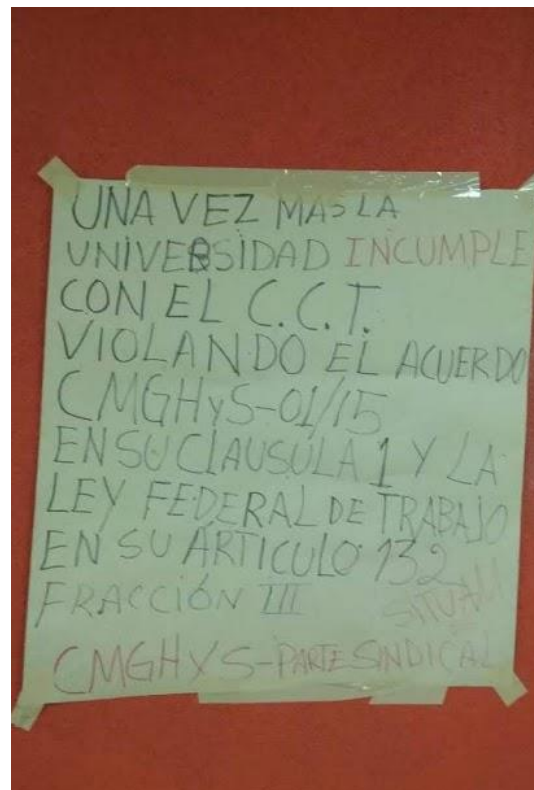 UNA VEZ MAS LA
UNIVERSIDAD INCUMPLE
CON EL C.C.T.
VIOLANDO EL ACUERDO
CMGHyS-01/15
EN SU CLAUSULA 1 Y LA
LEY FEDERAL DE TRABAJO
EN SU ARTICULO 132
FRACCIÓN III
SITUAM
CMGHYS-PARTE SINDICAL